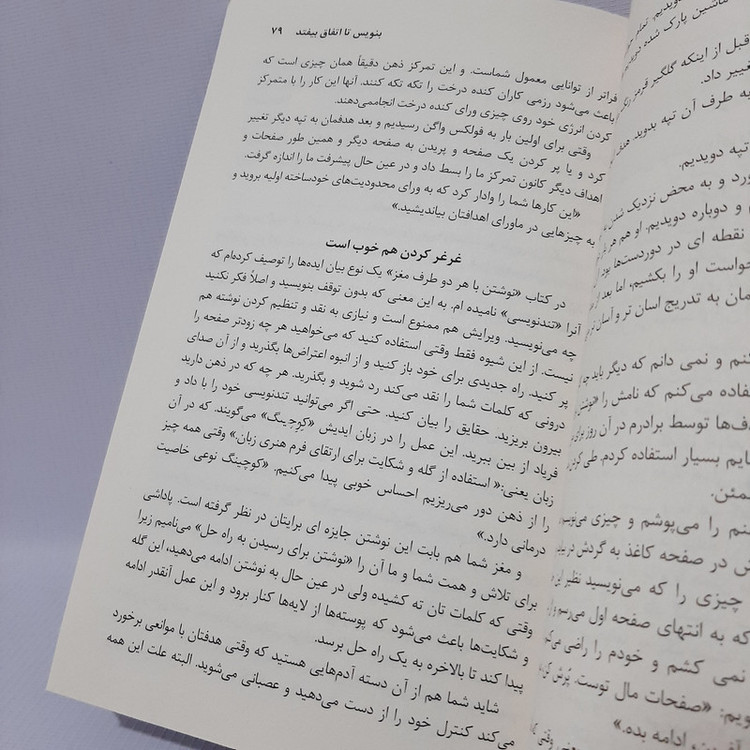 بنویس تا اتفاق بیفتد ۷۹
فراتر از توانایی معمول شماست. و این تمرکز ذهن دقیقاً همان چیزی است که
باعث می‌شود رزمی کاران کنده درخت را تکه تکه کنند. آنها این کار را با متمرکز
کردن انرژی خود روی چیزی ورای کنده درخت انجام‌می‌دهند.
وقتی برای اولین بار به فولکس واگن رسیدیم و بعد هدفمان به تپه دیگر تغییر
کرد و یا پر کردن یک صفحه و پریدن به صفحه دیگر و همین طور صفحات و
اهداف دیگر کانون تمرکز ما را بسط داد و در عین حال پیشرفت ما را اندازه گرفت.
«این کارها شما را وادار کرد که به ورای محدودیت‌های خودساخته اولیه بروید و
به چیزهایی در ماورای اهدافتان بیاندیشید.»
غرغر کردن هم خوب است
در کتاب «نوشتن با هر دو طرف مغز» یک نوع بیان ایده‌ها را توصیف کرده‌ام که
آنرا «تندنویسی» نامیده ام. به این معنی که بدون توقف بنویسید و اصلاً فکر نکنید
چه می‌نویسید. ویرایش هم ممنوع است و نیازی به نقد و تنظیم کردن نوشته هم
نیست. از این شیوه فقط وقتی استفاده کنید که می‌خواهید هر چه زودتر صفحه را
پر کنید. راه جدیدی برای خود باز کنید و از انبوه اعتراض‌ها بگذرید و از آن صدای
درونی که کلمات شما را نقد می‌کند رد شوید و بگذرید. هر چه که در ذهن دارید
بیرون بریزید. حقایق را بیان کنید. حتی اگر می‌توانید تندنویسی خود را با داد و
فریاد از بین ببرید. این عمل را در زبان ایدیش «کوچینگ» می‌گویند. که در آن
زبان یعنی:« استفاده از گله و شکایت برای ارتقای فرم هنری زبان.» وقتی همه چیز
را از ذهن دور می‌ریزیم احساس خوبی پیدا می‌کنیم. «کوچینگ نوعی خاصیت
درمانی دارد.»
و مغز شما هم بابت این نوشتن جایزه ای برایتان در نظر گرفته است. پاداشی
برای تلاش و همت شما و ما آن را «نوشتن برای رسیدن به راه حل» می‌نامیم زیرا
وقتی که کلمات تان ته کشیده ولی در عین حال به نوشتن ادامه می‌دهید، این گله
و شکایت‌ها باعث می‌شود که پوسته‌ها از لایه‌ها کنار برود و این عمل آنقدر ادامه
پیدا کند تا بالاخره به یک راه حل برسد.
شاید شما هم از آن دسته آدم‌هایی هستید که وقتی هدفتان با موانعی برخورد
می‌کند کنترل خود را از دست می‌دهید و عصبانی می‌شوید. البته علت این همه
ماشین پارک شده
قبل از اینکه گلگیر قرمز
تغییر داد.
به طرف آن تپه بدوید.
تپه دویدیم.
ورد و به محض نزدیک شدن
و دوباره دویدیم. او هم هر بار
نقطه ای در دوردست‌ها بود
خواست او را بکشیم، اما بعد از
مان به تدریج آسان تر و آسان تر
کنم و نمی دانم که دیگر باید چه
فاده می‌کنم که نامش را «نوشتن
دف‌ها توسط برادرم در آن روز برای
ایم بسیار استفاده کردم.
مئن.
نم را می‌پوشم و چیزی می‌نویسم
ش در صفحه کاغذ به گردش در
چیزی را که می‌نویسید نظیر این
که به انتهای صفحه اول می‌رسم
نمی کشم و خودم را راضی می‌کنم
ویم: «صفحات مال توست.
ادامه بده.»